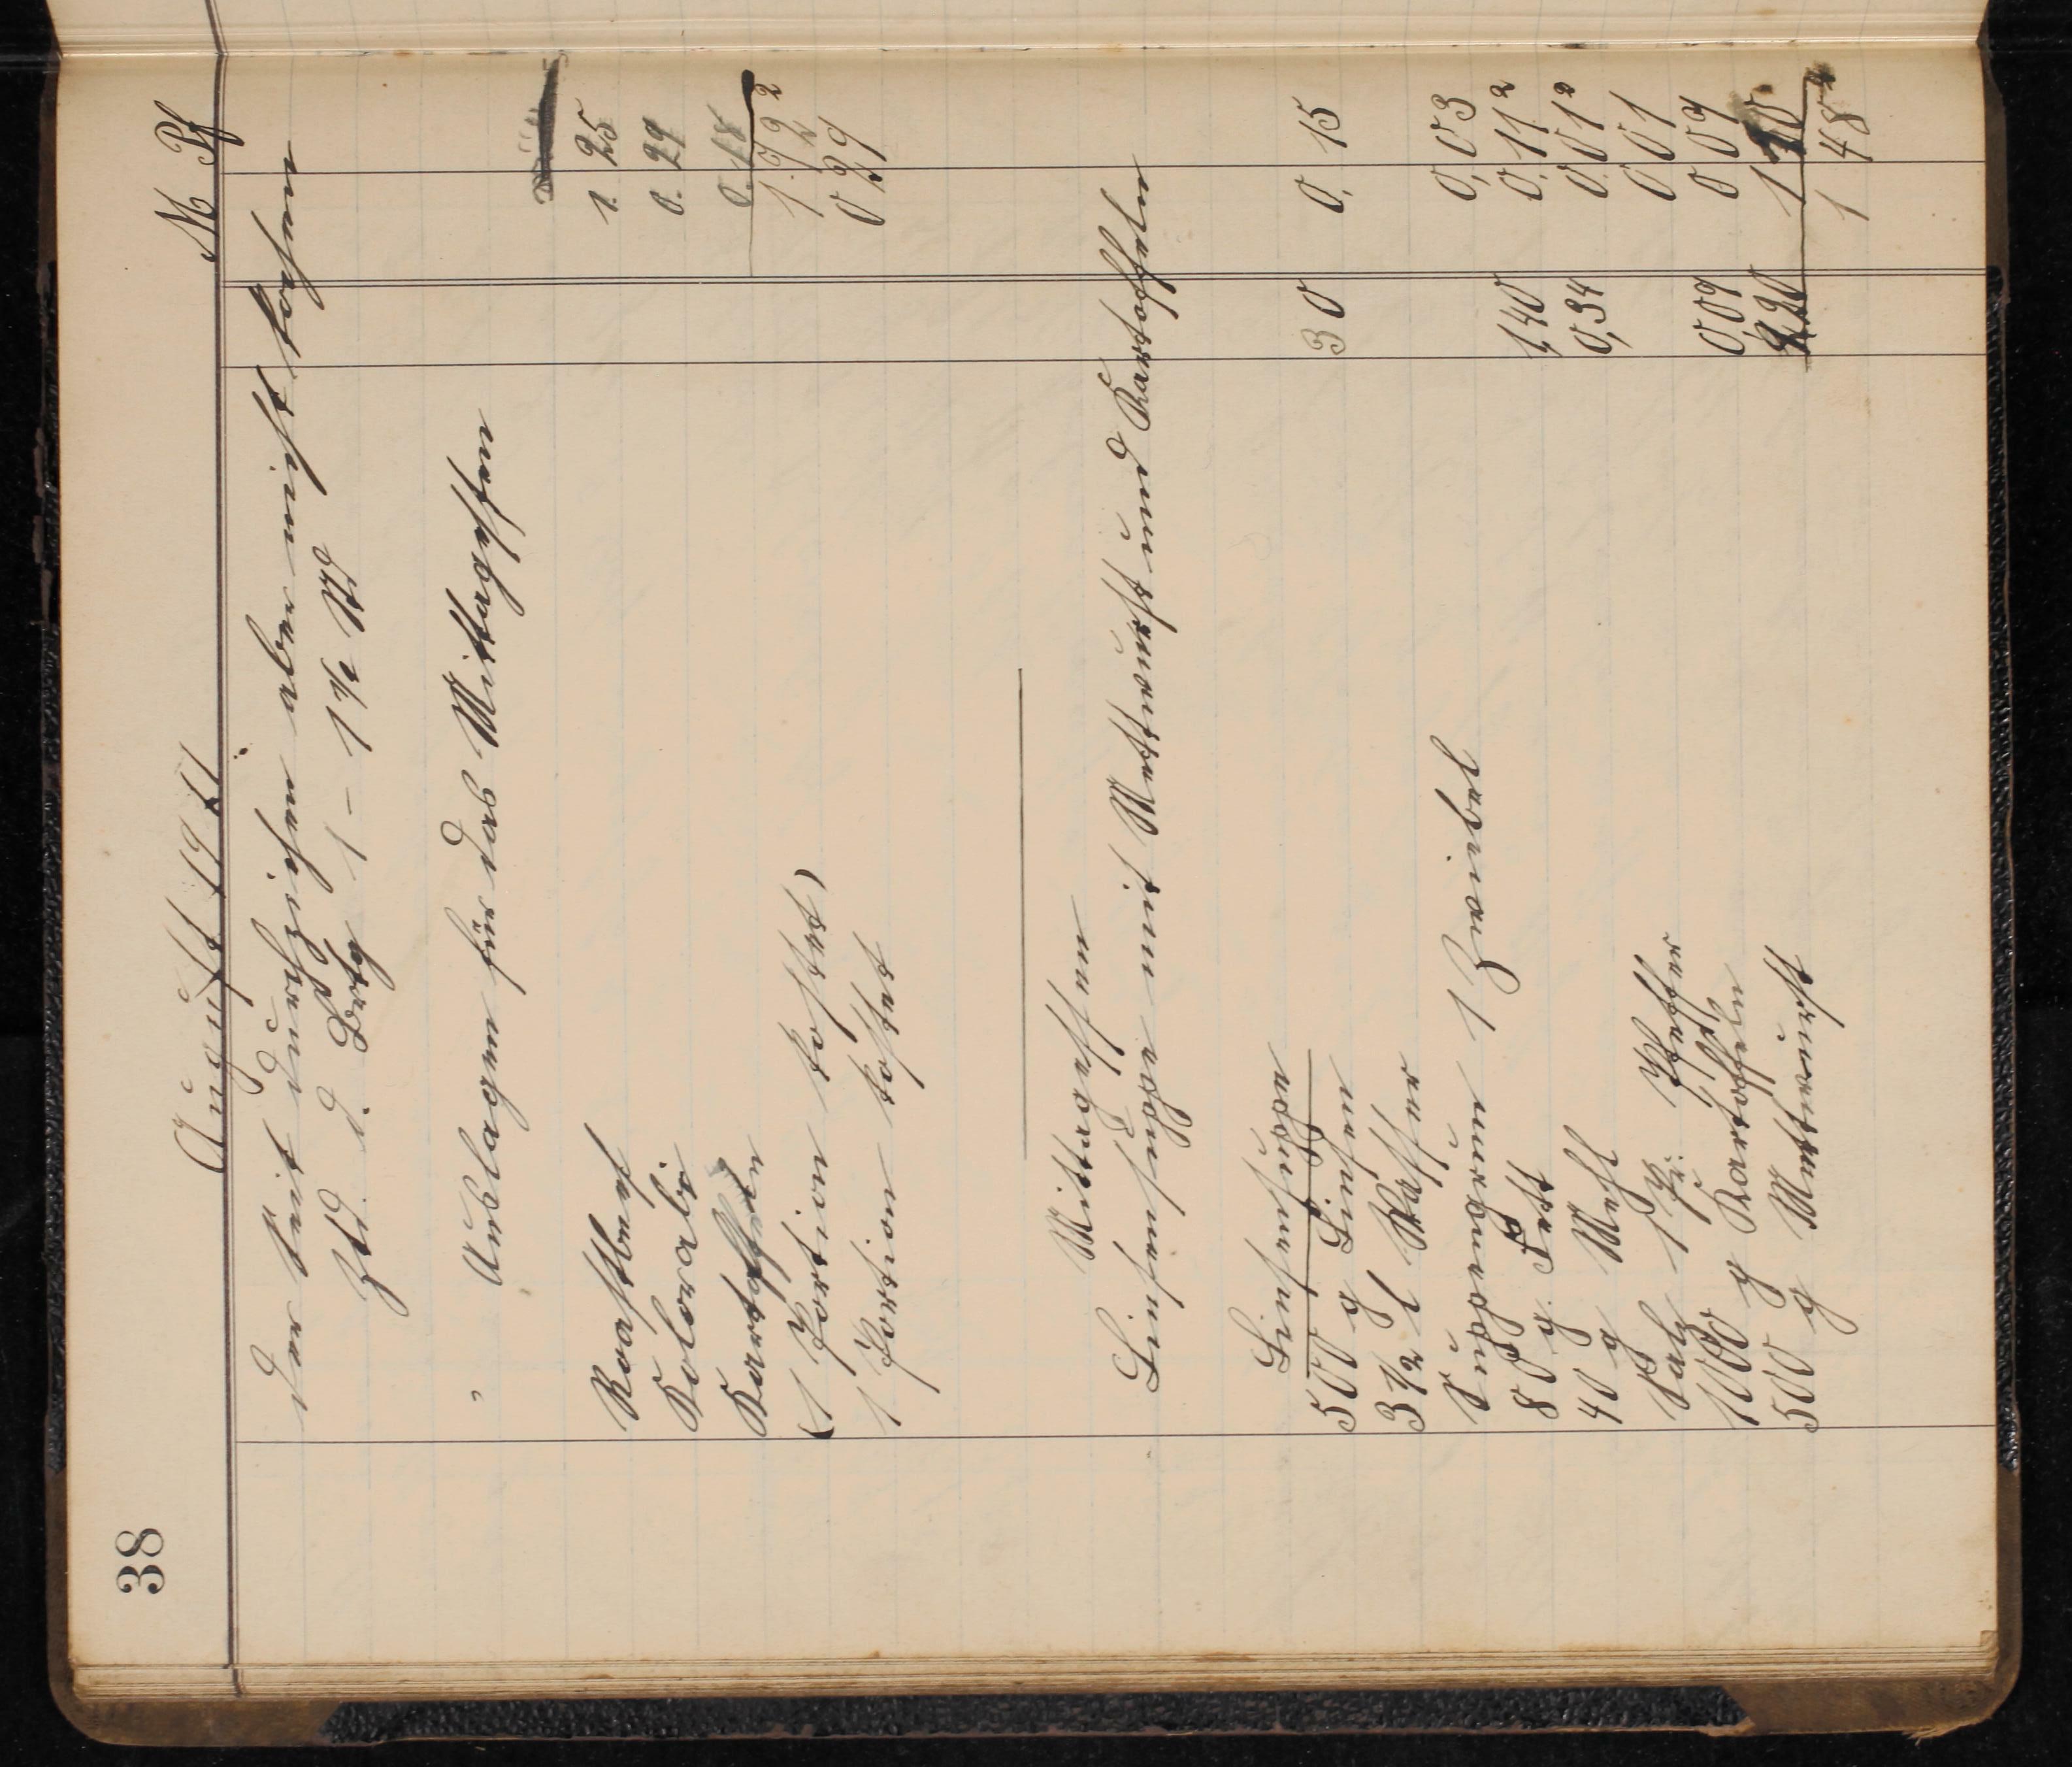 38
August 1911. M Pf
der Zeit durchziehen aber nicht kochen
Ztd. d. Bertg 1 - 1½ Std
Auslagen für das Mittagessen
Roastbeef 1. 25
Kolorabi 0. 29
Kartoffeln 0. 18
(1 Portion kostet) 1. 72 2
1 Portion kostet 0 29
Mittagessen
Linsensuppe mit Mettwurst und Kartoffeln
Linsensuppe
500 g Linsen 30 0, 15
3 ½ l Wasser
Suppengrün 1 Zwiebel 0, 03
80 g. Fett 1,40 0, 11 2
40 g Mehl 0,34 0. 01 2
Salz 1 Pr. Pfeffer 0 01
1000 g Kartoffeln 0,09 0 09
500 g Mettwurst 2,20 1
1 48 4